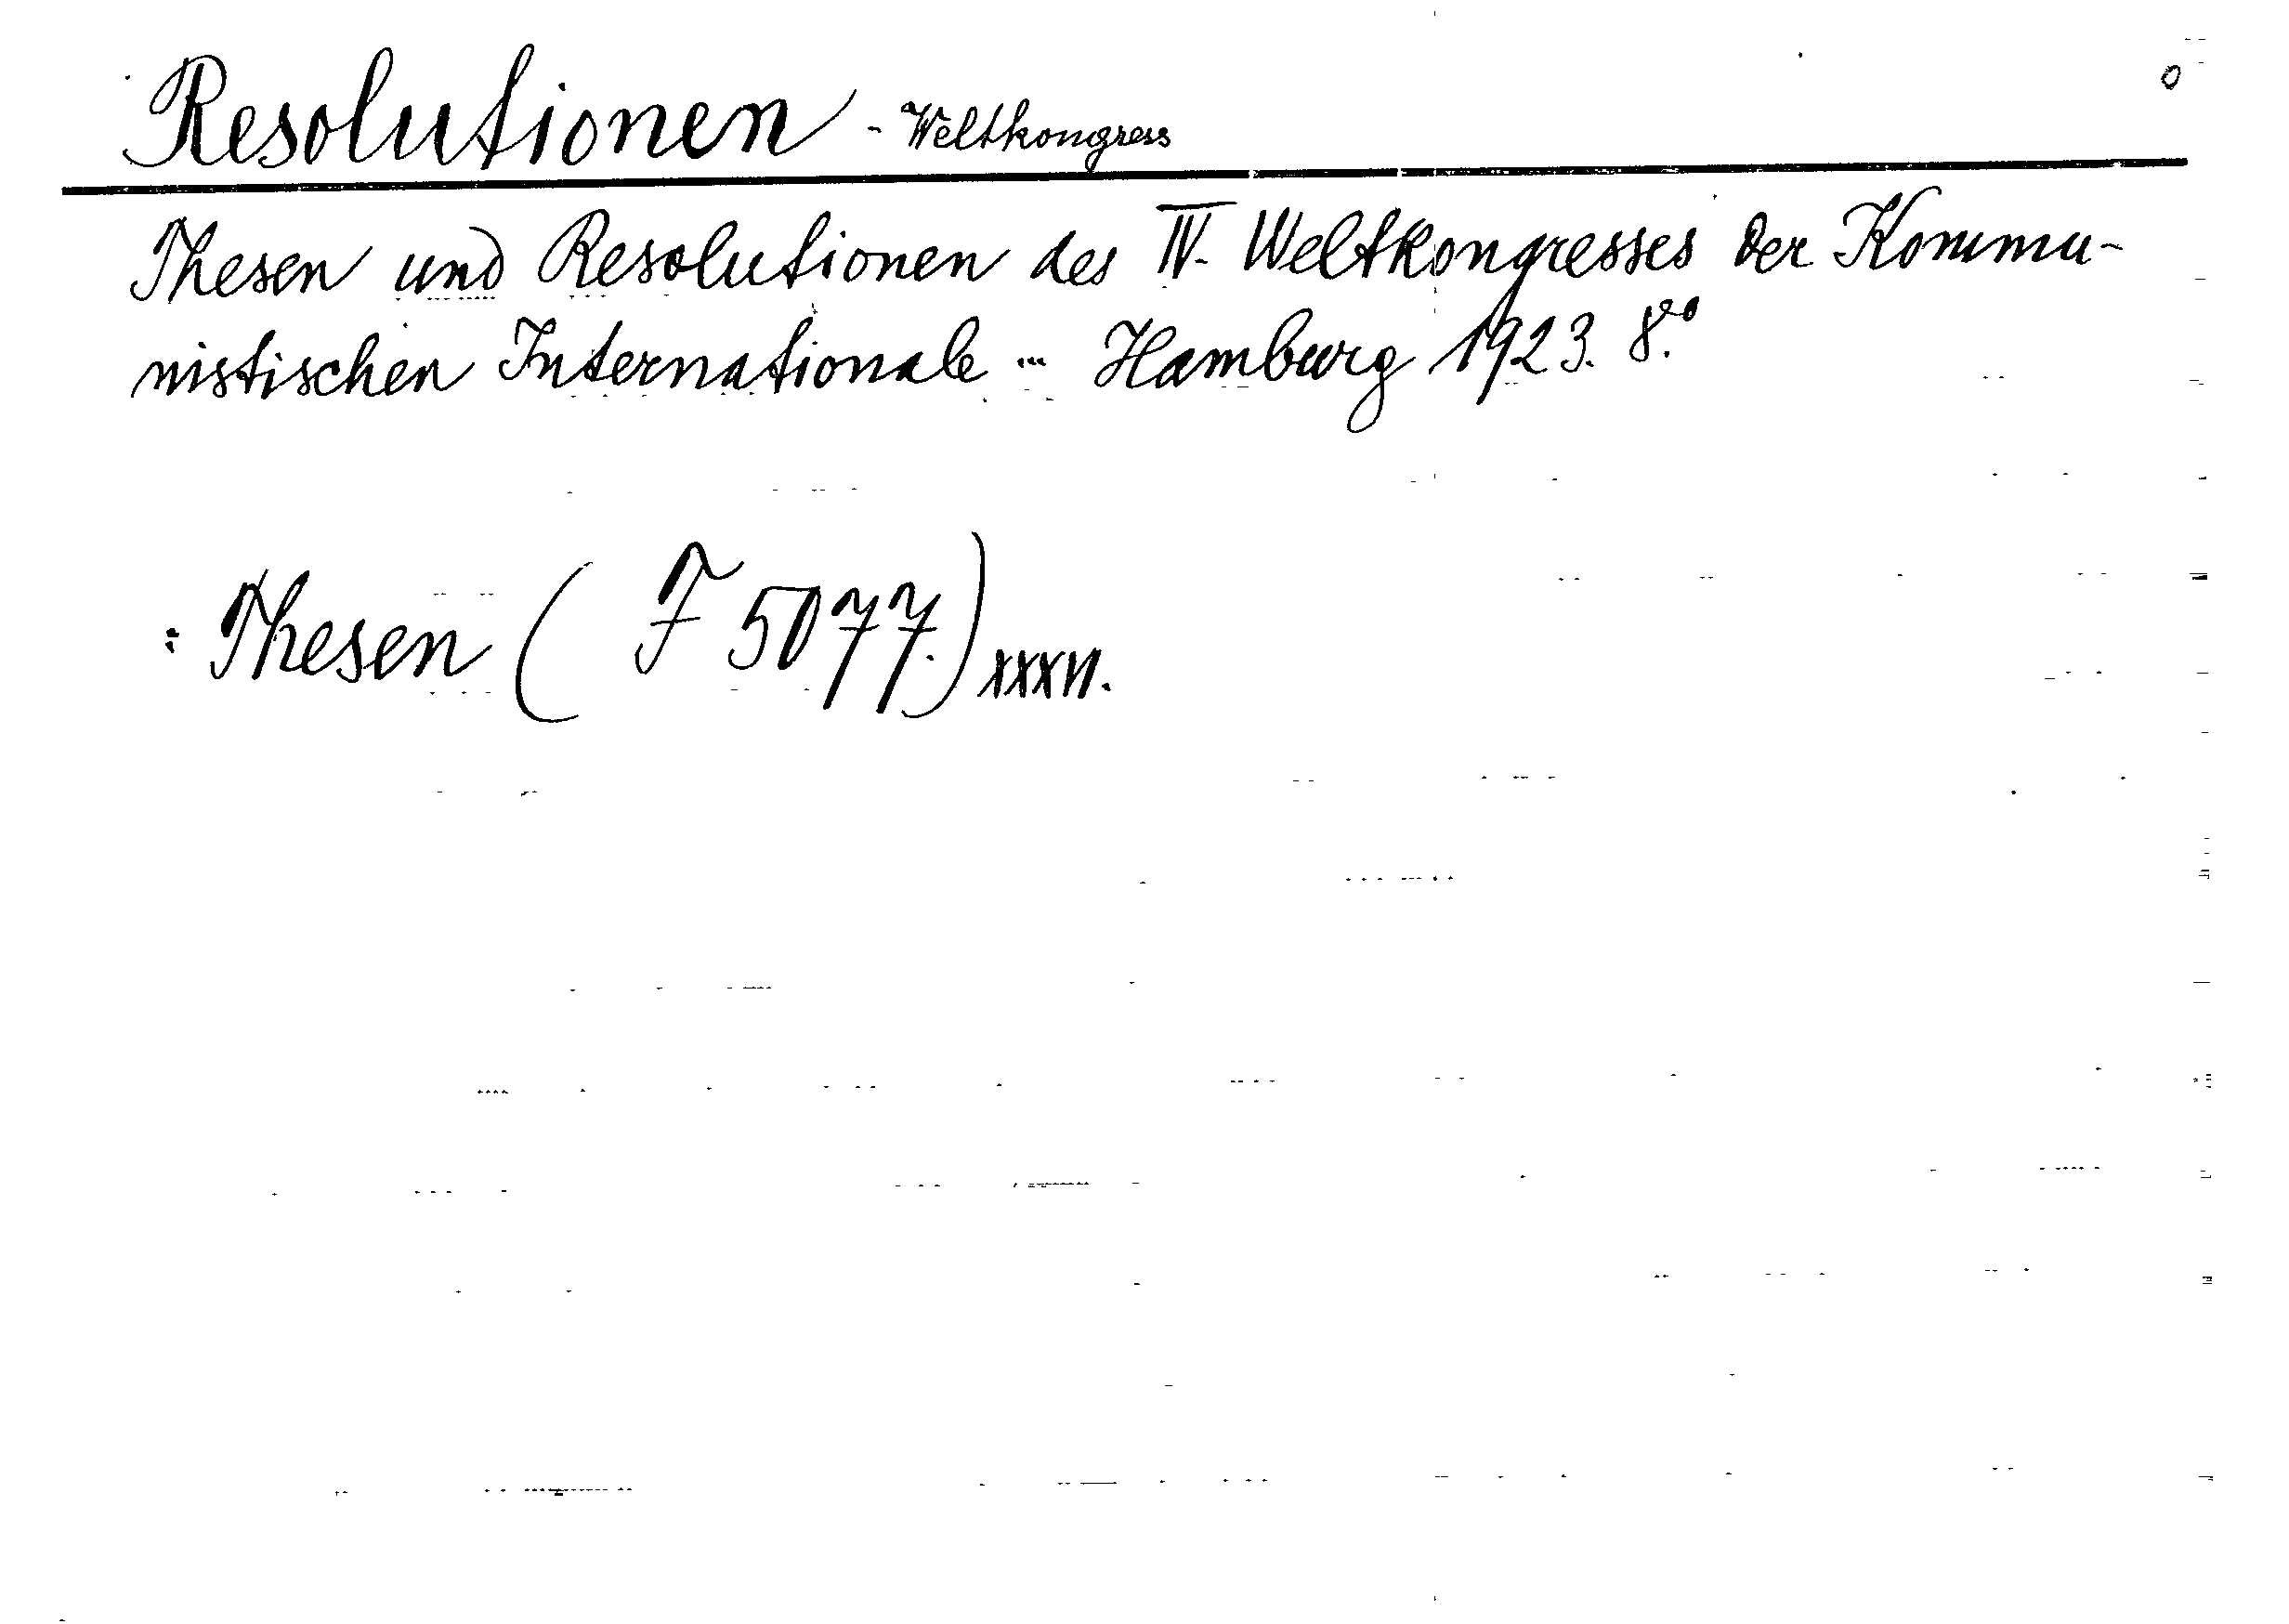 Resolutionen - Weltkongress
Thesen und Resolutionen des IV. Weltkongresses der Kommu-
nistischen Internationale ... Hamburg 1923. 8.°
: Thesen ( F 5077.) XXXVI.